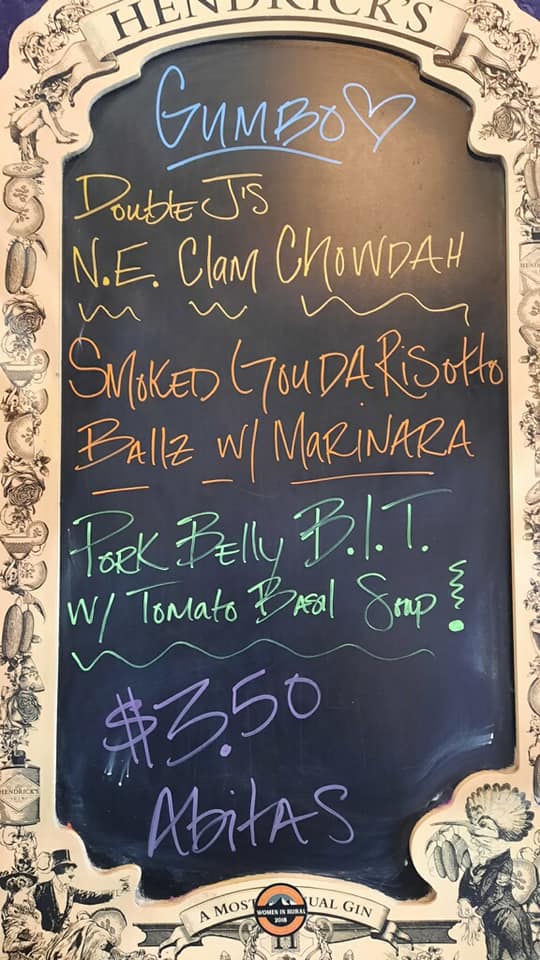 HENDRICK'S
GUMBO
Double J's
N.E. Clam CHOWDAH
SMOKED GOUDA RiSotto
Ballz w/ MARINARA
PORK Belly B.L.T.
w/ Tomato Basil Soup!
$3.50
AbitAS
HENDRICK'S
A MOST UAL GIN
WOMEN IN RURAL
2018